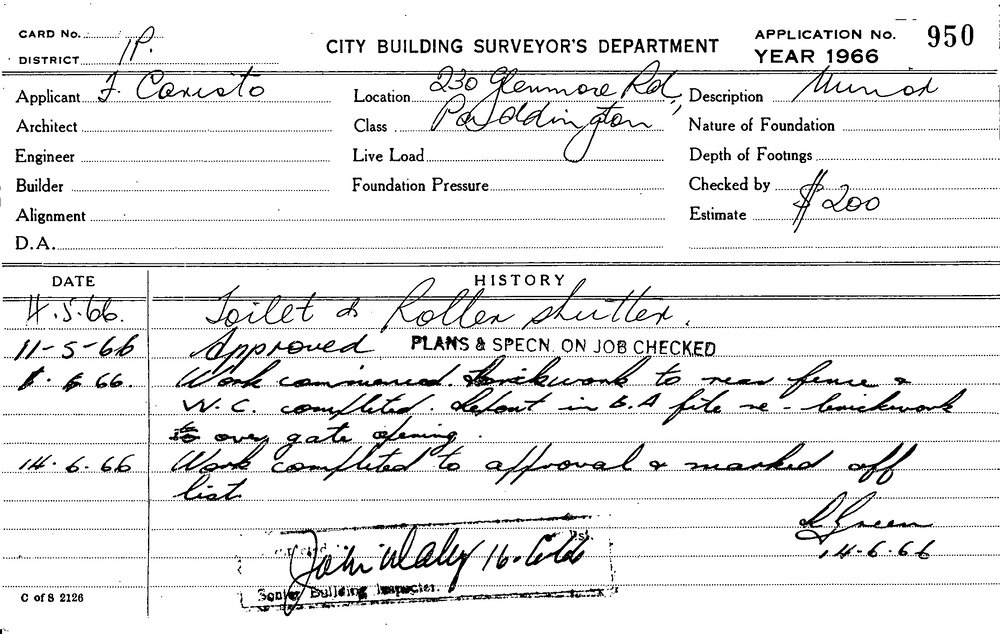 CARD No.
DISTRICT 1P.
CITY BUILDING SURVEYOR'S DEPARTMENT
APPLICATION No. 950
YEAR 1966
Applicant F. Caristo
Location 230 Glenmore Rd,
Description Minor
Architect
Class Paddington
Nature of Foundation
Engineer
Live Load
Depth of Footings
Builder
Foundation Pressure
Checked by
Alignment
Estimate $200
D.A.
DATE HISTORY
4.5.66. Toilet & Roller shutter.
11-5-66 Approved PLANS & SPECN. ON JOB CHECKED
66. Work commenced. Brickwork to rear fence &
W.C. completed. Report in B.A file re - brickwork
over gate opening.
14.6.66 Work completed to approval & marked off
list
Green
14-6-66
list.
John 16.
Senior Building Inspector.
C of S 2126